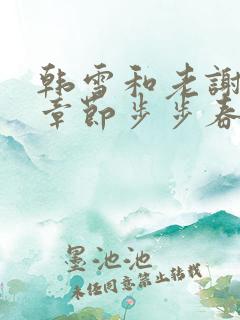 韩雪和老謝
章節步步春
墨池池
未经同意禁止转载